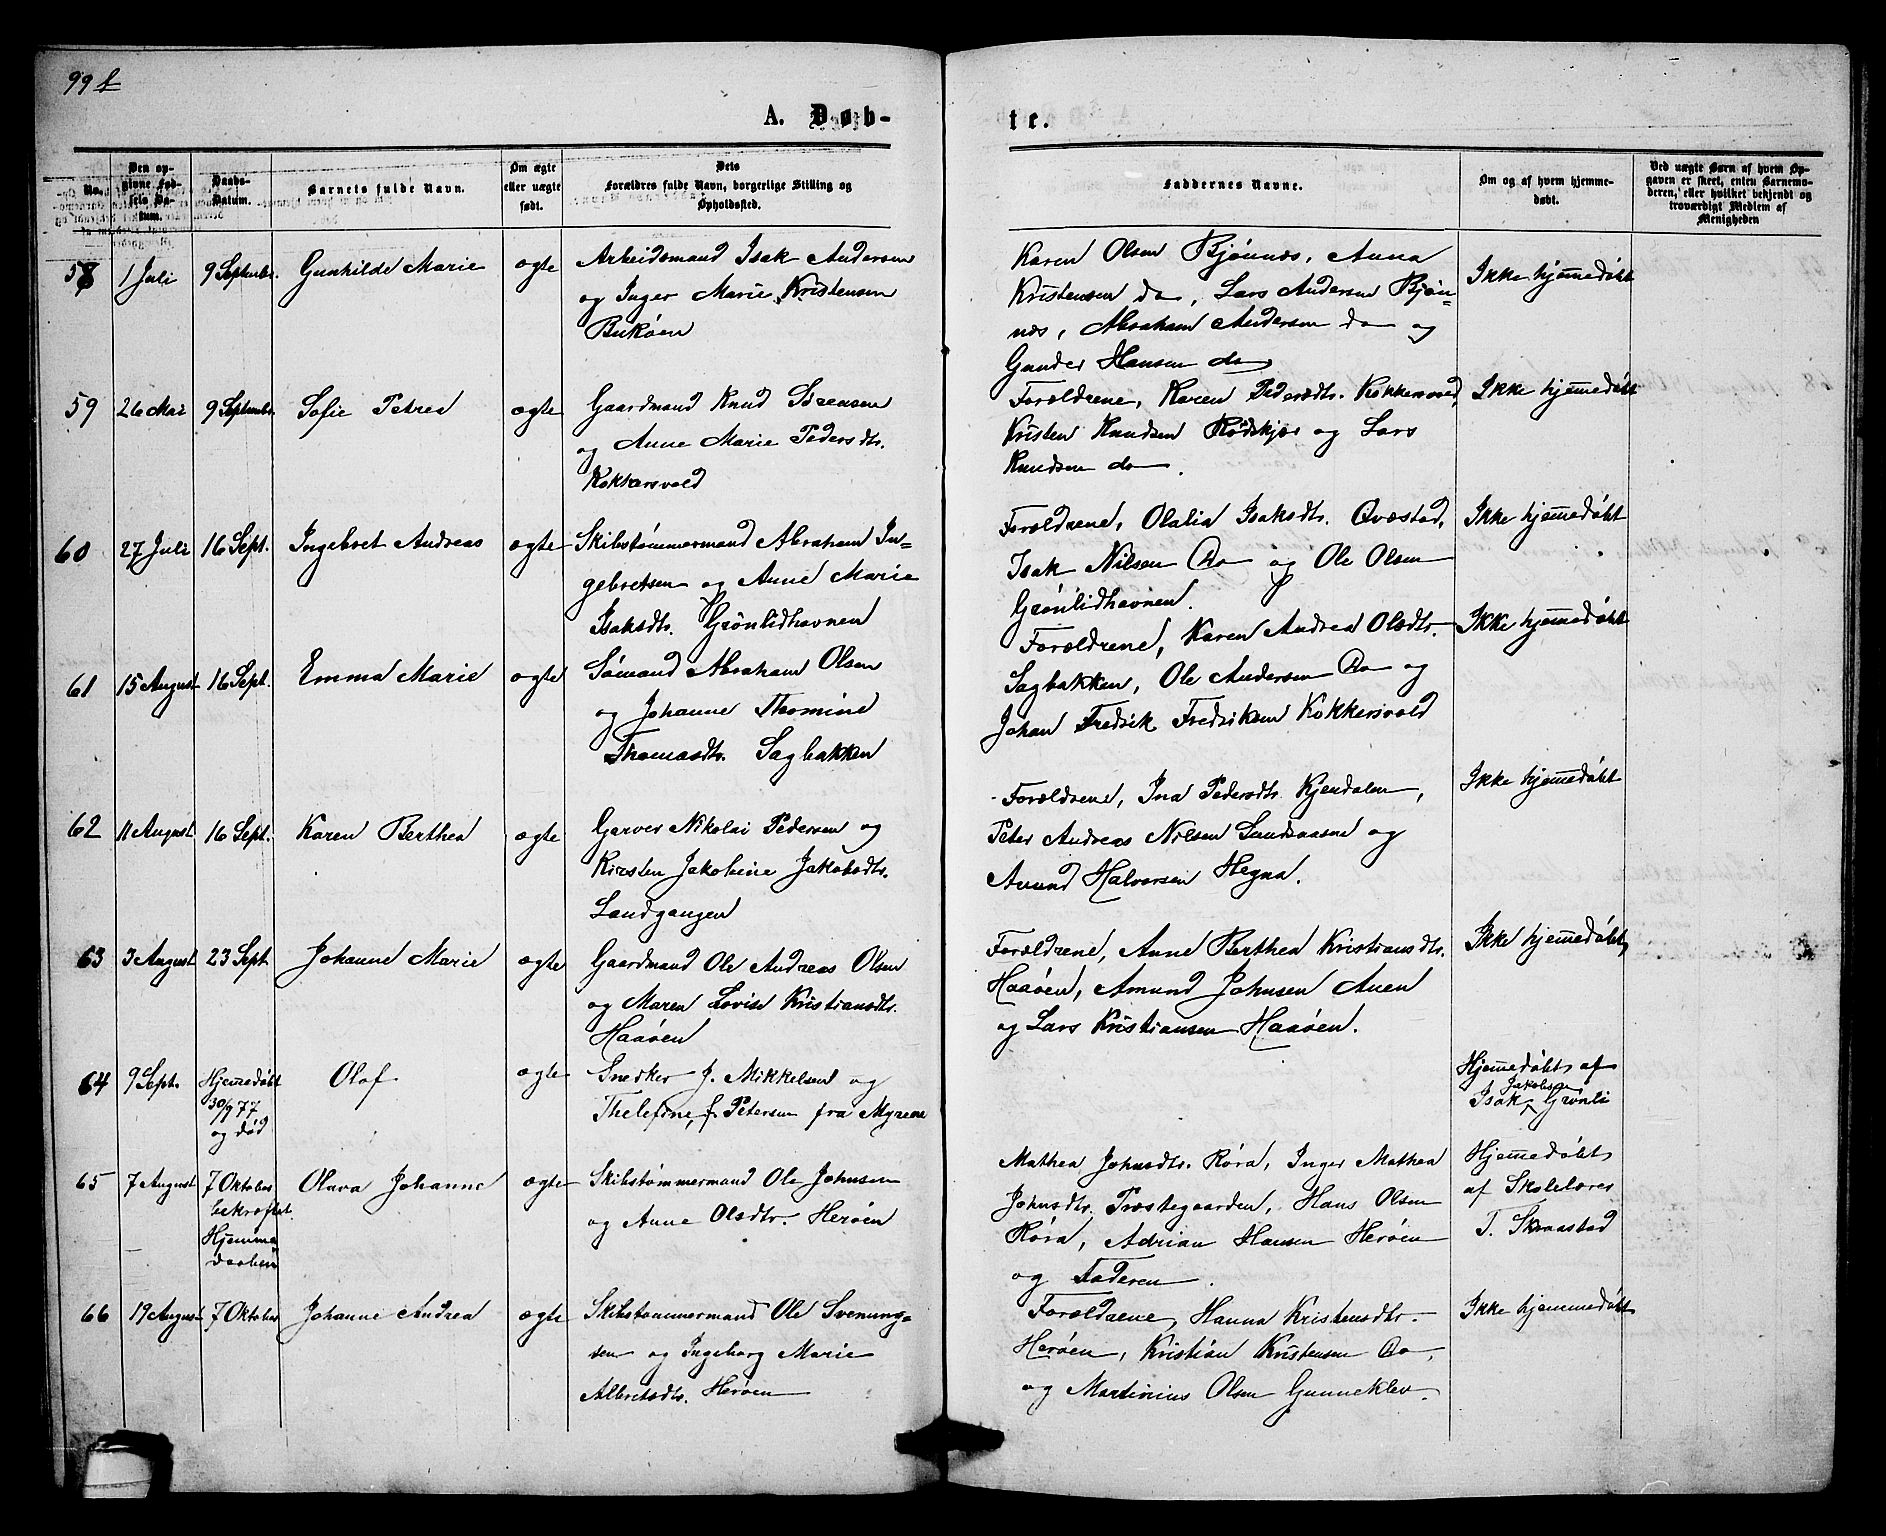 99 b
A. Døb-
te.
No.
Den op-
givne Fød-
sels Da-
tum.
Daabs-
Datum.
Barnets fulde Navn.
Om ægte
eller uægte
født.
Dets
Forældres fulde Navn, borgerlige Stilling og
Opholdssted.
Faddernes Navne.
Om og af hvem hjemme-
døbt.
Ved uægte Børn af hvem Op-
gaven er skeet, enten Barnemo-
deren, eller hvilket bekjendt og
troværdigt Medlem af
Menigheden
58 1 Juli 9 Septembr. Gunhilde Marie ægte Arbeidsmand Isak Andersen
og Inger Marie Kristensen
Bukøen
Karen Olsen Bjønnes, Anna
Kristensen do, Lars Andersen Bjøn-
nes, Abraham Andersen do og
Gunder Hansen do
Ikke hjemmedøbt
59 26 Mai 9 Septembr. Sofie Petrea ægte Gaardmand Knud Sørensen
og Anne Marie Pedersdtr.
Kokkersvold
Forældrene, Karen Pedersdtr. Kokkersvold,
Kristen Knudsen Rødskjær og Lars
Knudsen do.
Ikke hjemmedøbt
60 27 Juli 16 Sept. Ingebret Andreas ægte Skibstømmermand Abraham In-
gebretsen og Anne Marie
Isaksdtr. Grønlidhavnen
Forældrene, Olalia Isaksdtr. Qvæstad,
Isak Nilsen do og Ole Olsen
Grønlidhavnen.
Ikke hjemmedøbt
61 15 August 16 Sept. Emma Marie ægte Sømand Abraham Olsen
og Johanne Thomine
Thomasdtr. Sagbakken
Forældrene, Karen Andrea Olsdtr.
Sagbakken, Ole Andersen do og
Johan Fredrik Fredriksen Kokkersvold
Ikke hjemmedøbt
62 11 August 16 Sept. Karen Berthea ægte Garver Nikolai Pedersen og
Kirsten Jakobine Jakobsdtr.
Landgangen
Forældrene, Ina Pedersdtr. Kjendalen,
Peter Andreas Nilsen Sandaasne og
Amund Halvorsen Hegna.
Ikke hjemmedøbt
63 3 August 23 Sept. Johanne Marie ægte Gaardmand Ole Andreas Olsen
og Maren Lovise Kristiansdtr.
Haaøen
Forældrene, Anne Berthea Kristiansdtr.
Haaøen, Amund Johnsen Auen
og Lars Kristiansen Haaøen.
Ikke hjemmedøbt
64 9 Sept. Hjemmedøbt
30/9 77
og død
Olaf ægte Snedker J. Mikkelsen og
Thelefine, f. Petersen fra Myrene
Hjemmedøbt af
Isak Jakobsen Grønli
65 7 August 7 Oktober
bekræftet.
Hjemme
daaben
Olava Johanne ægte Skibstømmermand Ole Johnsen
og Anne Olsdtr. Herøen
Mathea Johnsdtr. Røra, Inger Mathea
Johnsdtr. Præstegaarden, Hans Olsen
Røra, Adrian Hansen Herøen
og Faderen.
Hjemmedøbt
af Skolelærer
T. Skraastad
66 19 August 7 Oktober Johanne Andrea ægte Skibstømmermand Ole Svenung-
sen og Ingeborg Marie
Albretsdtr. Herøen
Forældrene, Hanna Kristensdtr.
Herøen, Kristian Kristensen do,
og Martinius Olsen Gunneklev.
Ikke hjemmedøbt